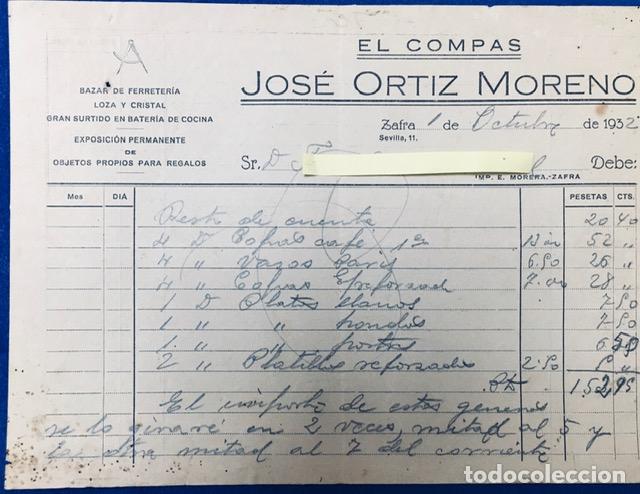 EL COMPAS
JOSÉ ORTIZ MORENO
BAZAR DE FERRETERÍA
LOZA Y CRISTAL
GRAN SURTIDO EN BATERÍA DE COCINA
EXPOSICIÓN PERMANENTE
DE
OBJETOS PROPIOS PARA REGALOS
Zafra 1 de Octubre de 1932
Sevilla, 11.
Sr. D. Debe:
IMP. E. MORERA.-ZAFRA
Mes DIA PESETAS CTS.
Resto de cuenta 20 40
4 D Copas café 1ª 13 00 52 "
4 " Vazos Paris 6.50 26 "
4 " Copas reforzad 7.00 28 "
1 D Platos llanos 7 50
1 " " hondos 7 50
1 " " postres 6 
2 " Platillos reforzados 2.50 5 "
152,95
El importe de estos generos
se lo giraré en 2 veces, mitad al 5 y
la otra mitad al 7 del corriente
todocoleccion